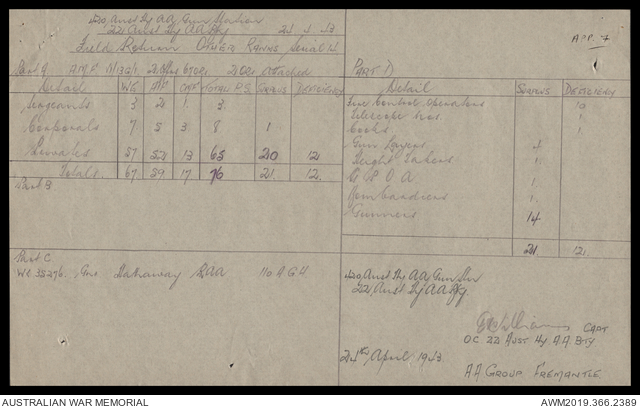 420, Aust Hy AA Gun Station
22 Aust Hy AA Bty 24 4 43
Field Return OTHER RANKS Serial
APP. 7
Part A. A.M.F. 2 Offrs 67 ORs 2 ORs Attached
Detail WE TOTAL P.S. SURPLUS DEFICIENCY
Sergeants 3 2 1 3
Corporals 7 5 3 8 1
Privates 57 52 13 65 20 12
Totals 67 59 17 76 21 12
Part B
Part C
WX 35276 Gnr Hathaway RAA 110 A G H
PART D
Detail SURPLUS DEFICIENCY
Fire Control Operators 10
Telescope Nos. 1
Cooks 1
Gun Layers 4
Height Takers 1
G P O A 1
Bombardiers 1
Gunners 14
21 12
420, Aust Hy AA Gun Stn
22, Aust Hy AA Bty
Williams CAPT
OC 22 AUST Hy AA BTY
24th April 1943
AA GROUP FREMANTLE
AUSTRALIAN WAR MEMORIAL
AWM2019.366.2389